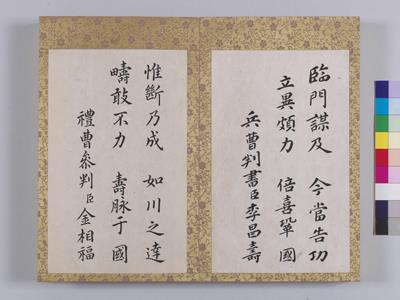 臨門謀及 今當告功
立異煩力 倍喜鞏國
兵曹判書臣李昌壽
惟斷乃成 如川之達
疇敢不力 壽脉于國
禮曹叅判臣金相福